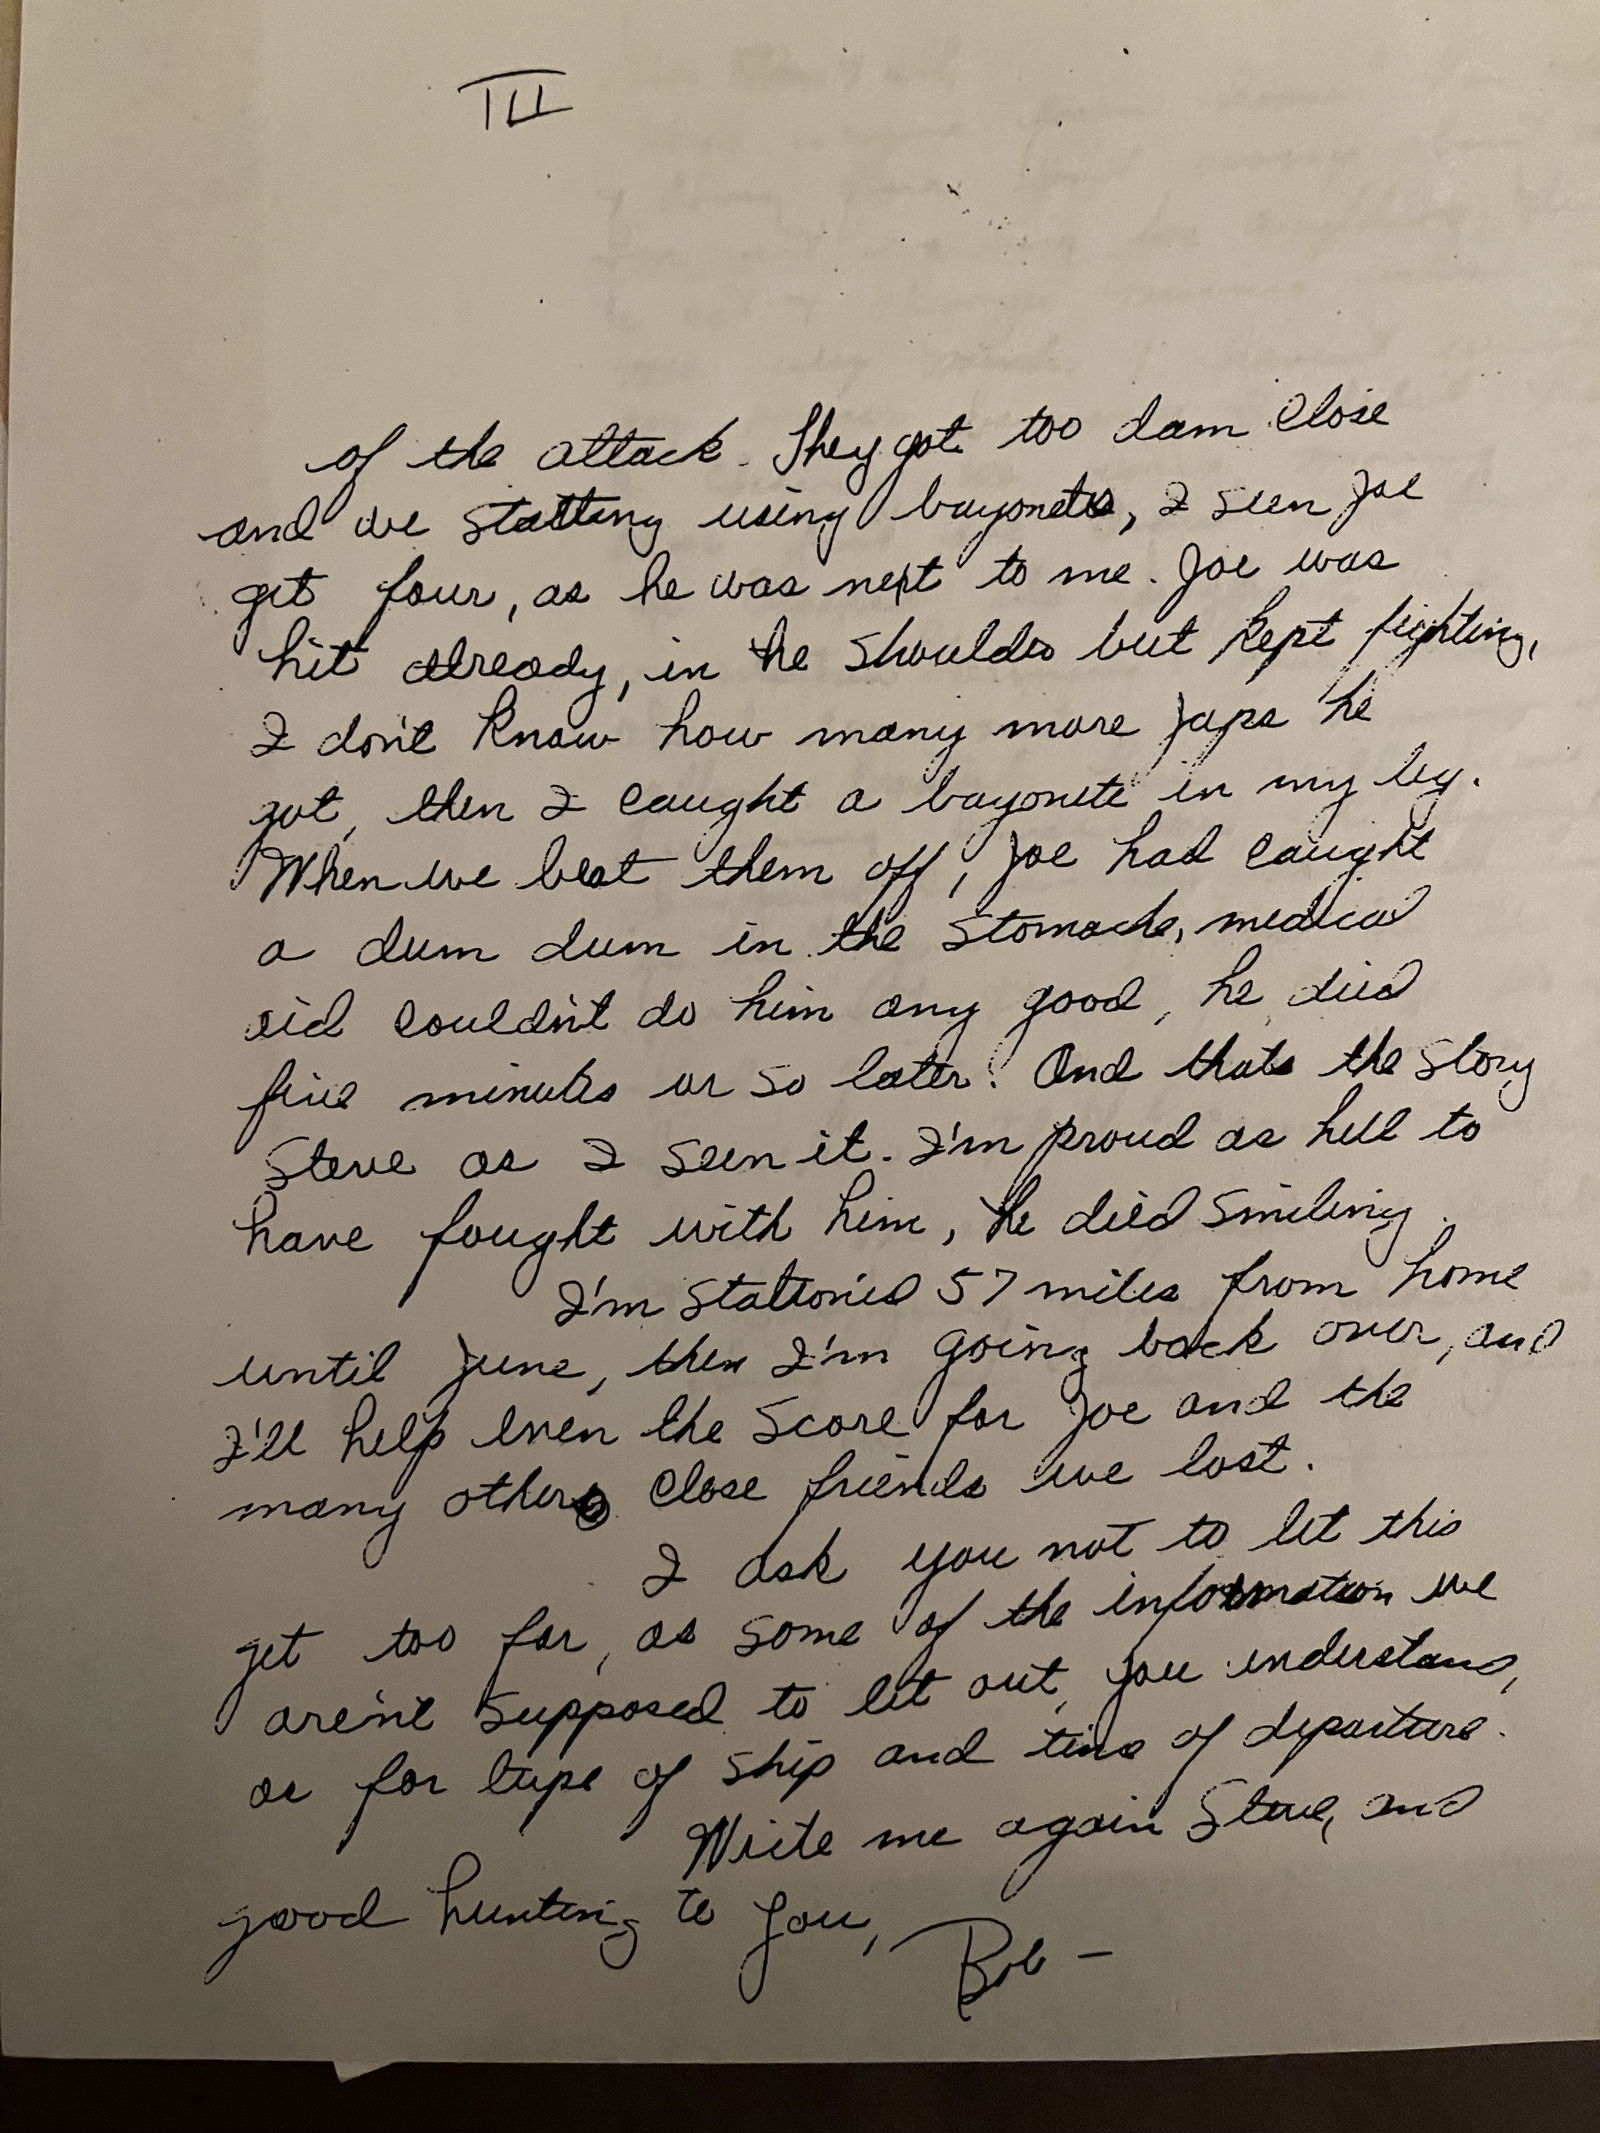 III
of the attack. They got too dam close
and we statting using bayonets, I seen Joe
get four, as he was next to me. Joe was
hit already, in the shoulder but kept fighting,
I don't know how many more Japs he
got, then I caught a bayonete in my leg.
When we beat them off, Joe had caught
a dum dum in the stomache, medical
aid couldn't do him any good, he died
five minutes or so later. And thats the story
Steve as I seen it. I'm proud as hell to
have fought with him, he died smiling.
I'm stationed 57 miles from home
until June, then I'm going back over, and
I'll help even the score for Joe and the
many others close friends we lost.
I ask you not to let this
get too far, as some of the information we
aren't supposed to let out, you understand,
as for type of ship and time of departure.
Write me again Steve, and
good hunting to you,
Bob -